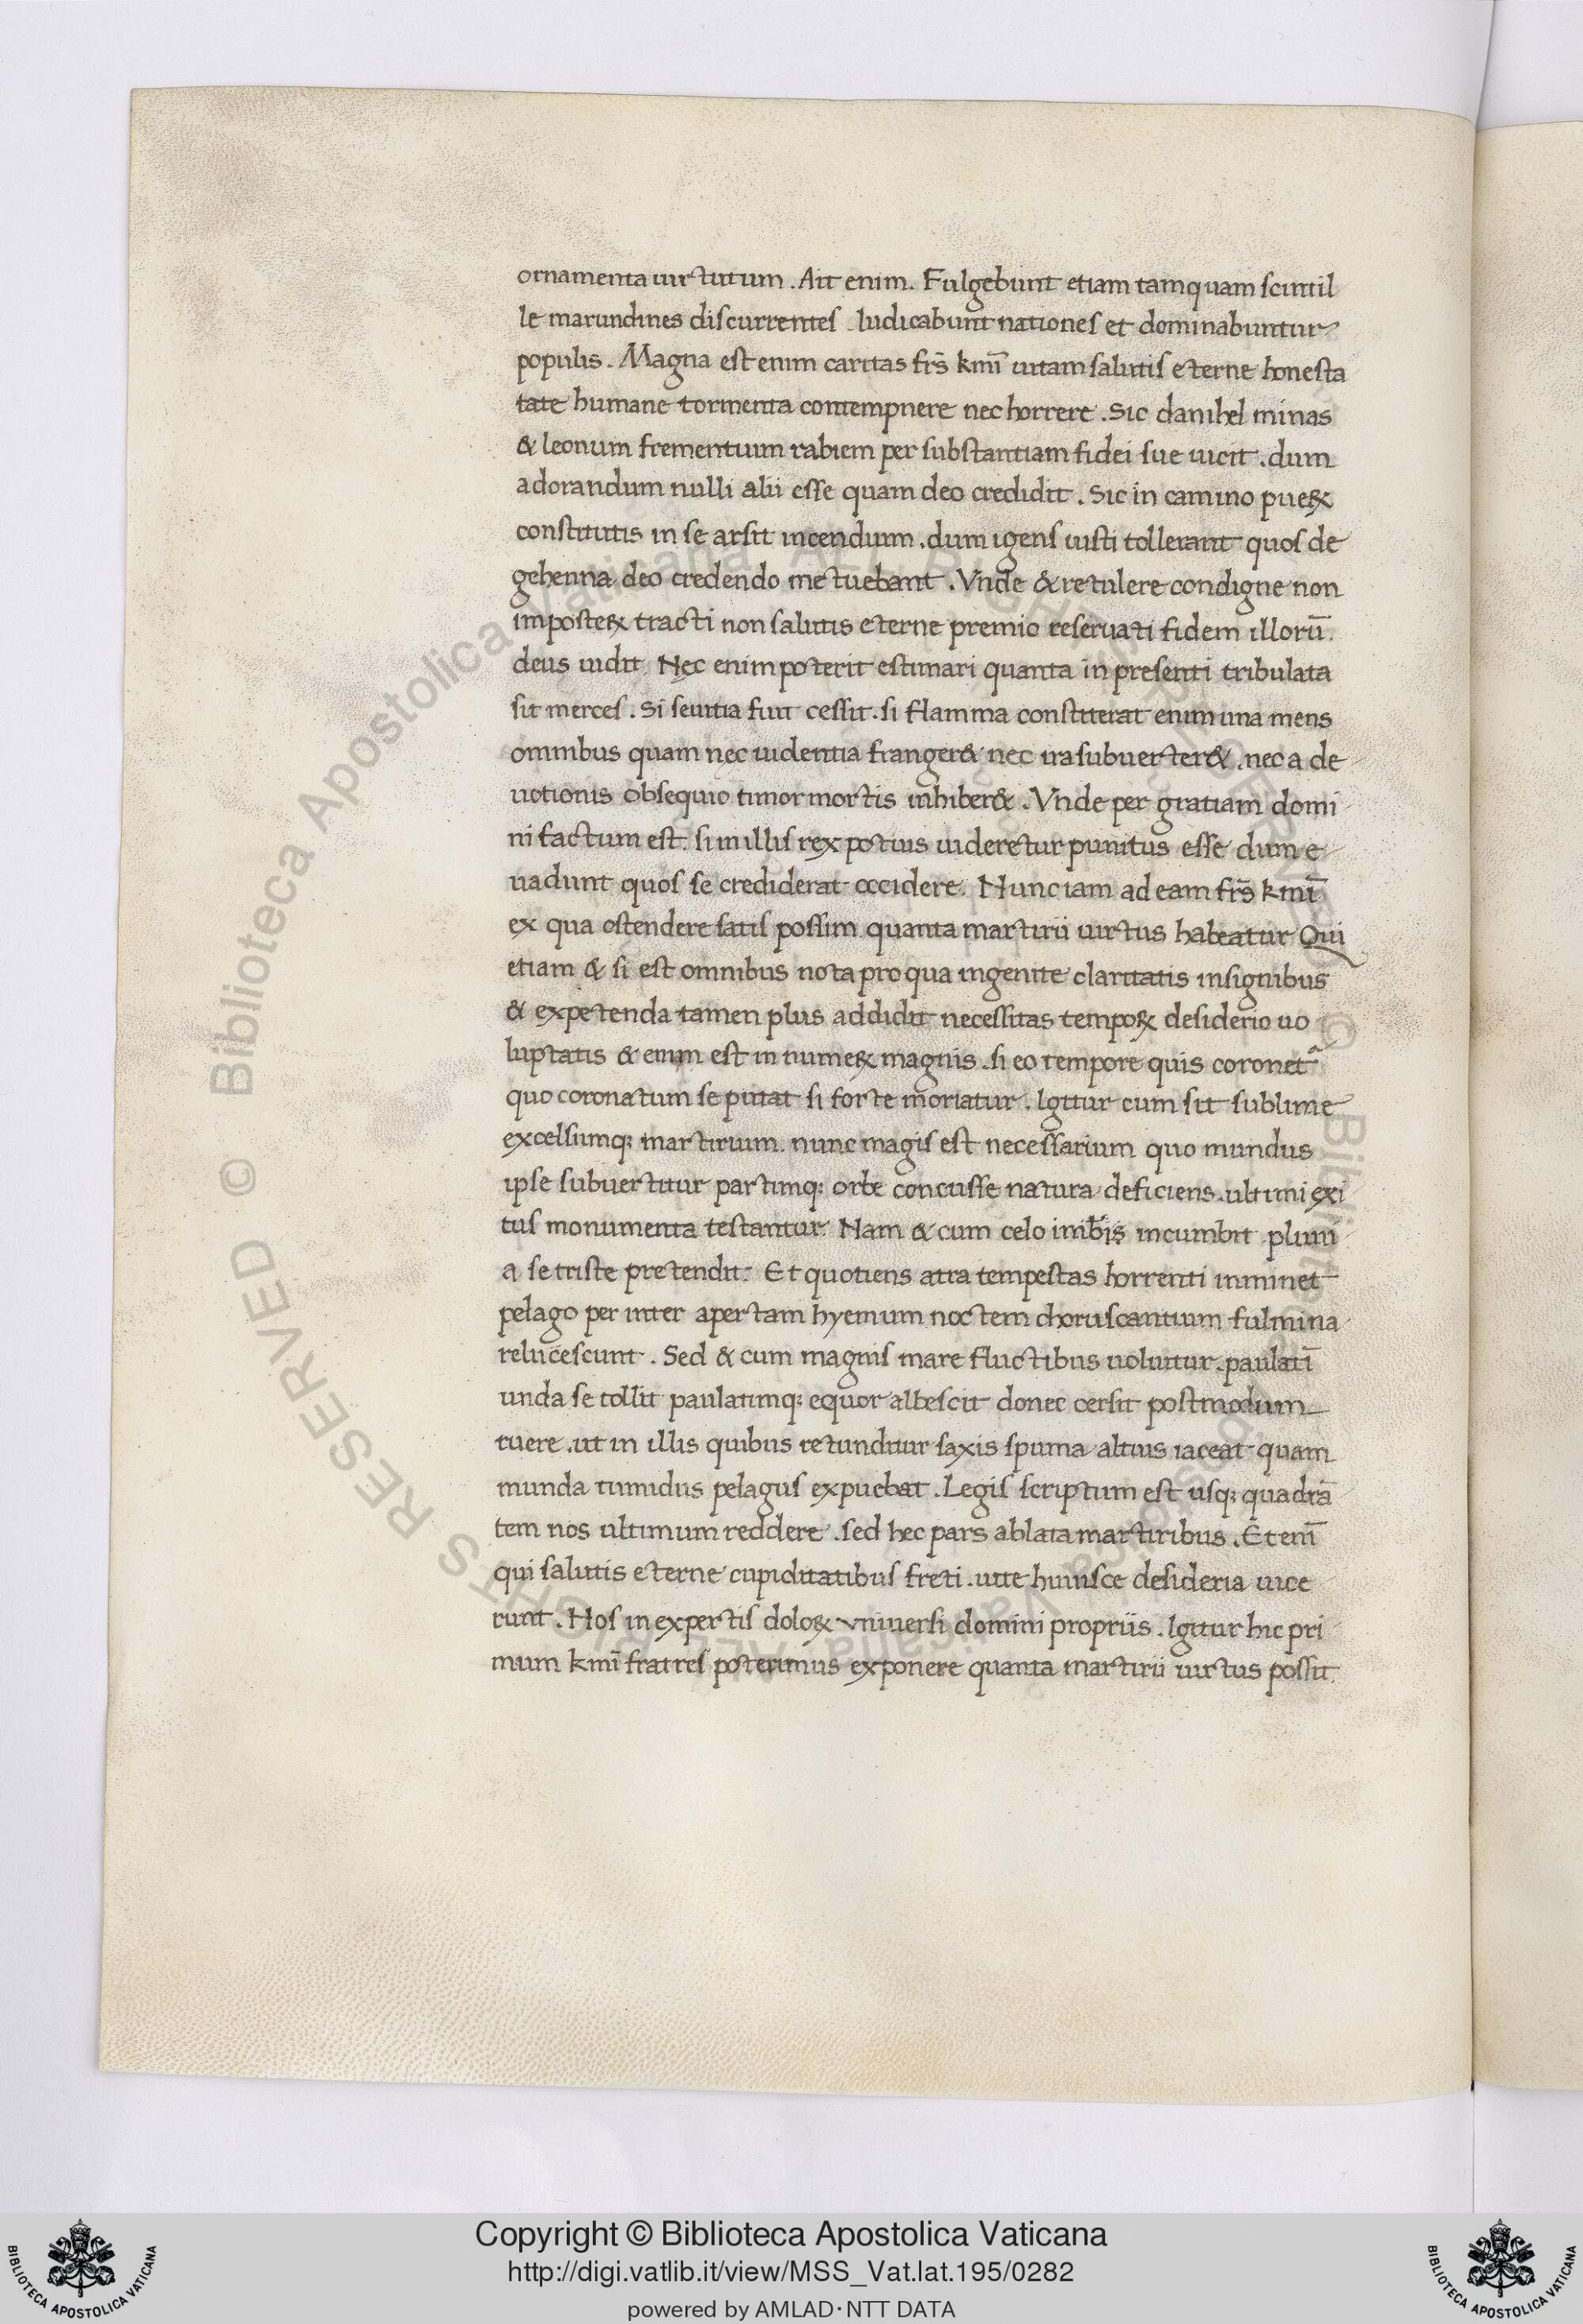 ornamenta uirtutum. Ait enim. Fulgebunt etiam tamquam scintil
le marundines discurrentes. Iudicabunt nationes et dominabuntur
populis. Magna est enim caritas frs̄ kmī uitam salutis eterne honesta
tate humane tormenta contempnere nec horrere. Sic danihel minas
& leonum frementium rabiem per substantiam fidei sue uicit. dum
adorandum nulli alii esse quam deo credidit. Sic in camino pueꝝ
constitutis in se arsit incendium. dum igens iusti tollerant quos de
gehenna deo credendo metuebant. Vnde & retulere condigne non
imposteꝝ tracti non salutis eterne premio reseruati fidem illorū.
deus uidit. Nec enim poterit estimari quanta in presenti tribulata
sit merces. Si seuitia fuit cessit. si flamma constiterat enim una mens
omnibus quam nec uidentia franger& nec ira subuerter&. nec a de
uotionis obsequio timor mortis inhiber&. Vnde per gratiam domi
ni factum est. si in illis rex potius uideretur punitus esse dum e
uadunt quos se crediderat occidere. Nunc iam ad eam frs̄ kmī
ex qua ostendere satis possim quanta martirii uirtus habeatur Qui
etiam & si est omnibus nota pro qua ingenite claritatis insignibus
& expetenda tamen plus addidit necessitas tempoꝝ desiderio uo
luptatis & enim est in numeꝝ magnis. si eo tempore quis coronet᷑
quo coronatum se putat si forte moriatur. Igitur cum sit sublime
excelsumq; martirium. nunc magis est necessarium quo mundus
ipse subuertitur partimq; orbe concusse natura deficiens. ultimi exi
tus monumenta testantur. Nam & cum celo imbris incumbit pluui
a se triste pretendit. Et quotiens atra tempestas horrenti imminet
pelago per inter apertam hyemum noctem choruscantium fulmina
relucescunt. Sed & cum magnis mare fluctibus uoluitur. paulatī
unda se tollit paulatimq; equor albescit donec cersit postmodum
ruere. ut in illis quibus retunditur saxis spuma altius iaceat quam
munda tumidus pelagus expuebat. Legis scriptum est usq; quadrā
tem nos ultimum reddere. sed hec pars ablata martiribus. Et enī
qui salutis eterne cupiditatibus freti. uite huiusce desideria uice
runt. Hos in expertis doloꝝ vniuersi domini propriis. Igitur hic pri
mum kmī fratres poterimus exponere quanta martirii uirtus possit.
Copyright © Biblioteca Apostolica Vaticana
http://digi.vatlib.it/view/MSS_Vat.lat.195/0282
powered by AMLAD·NTT DATA